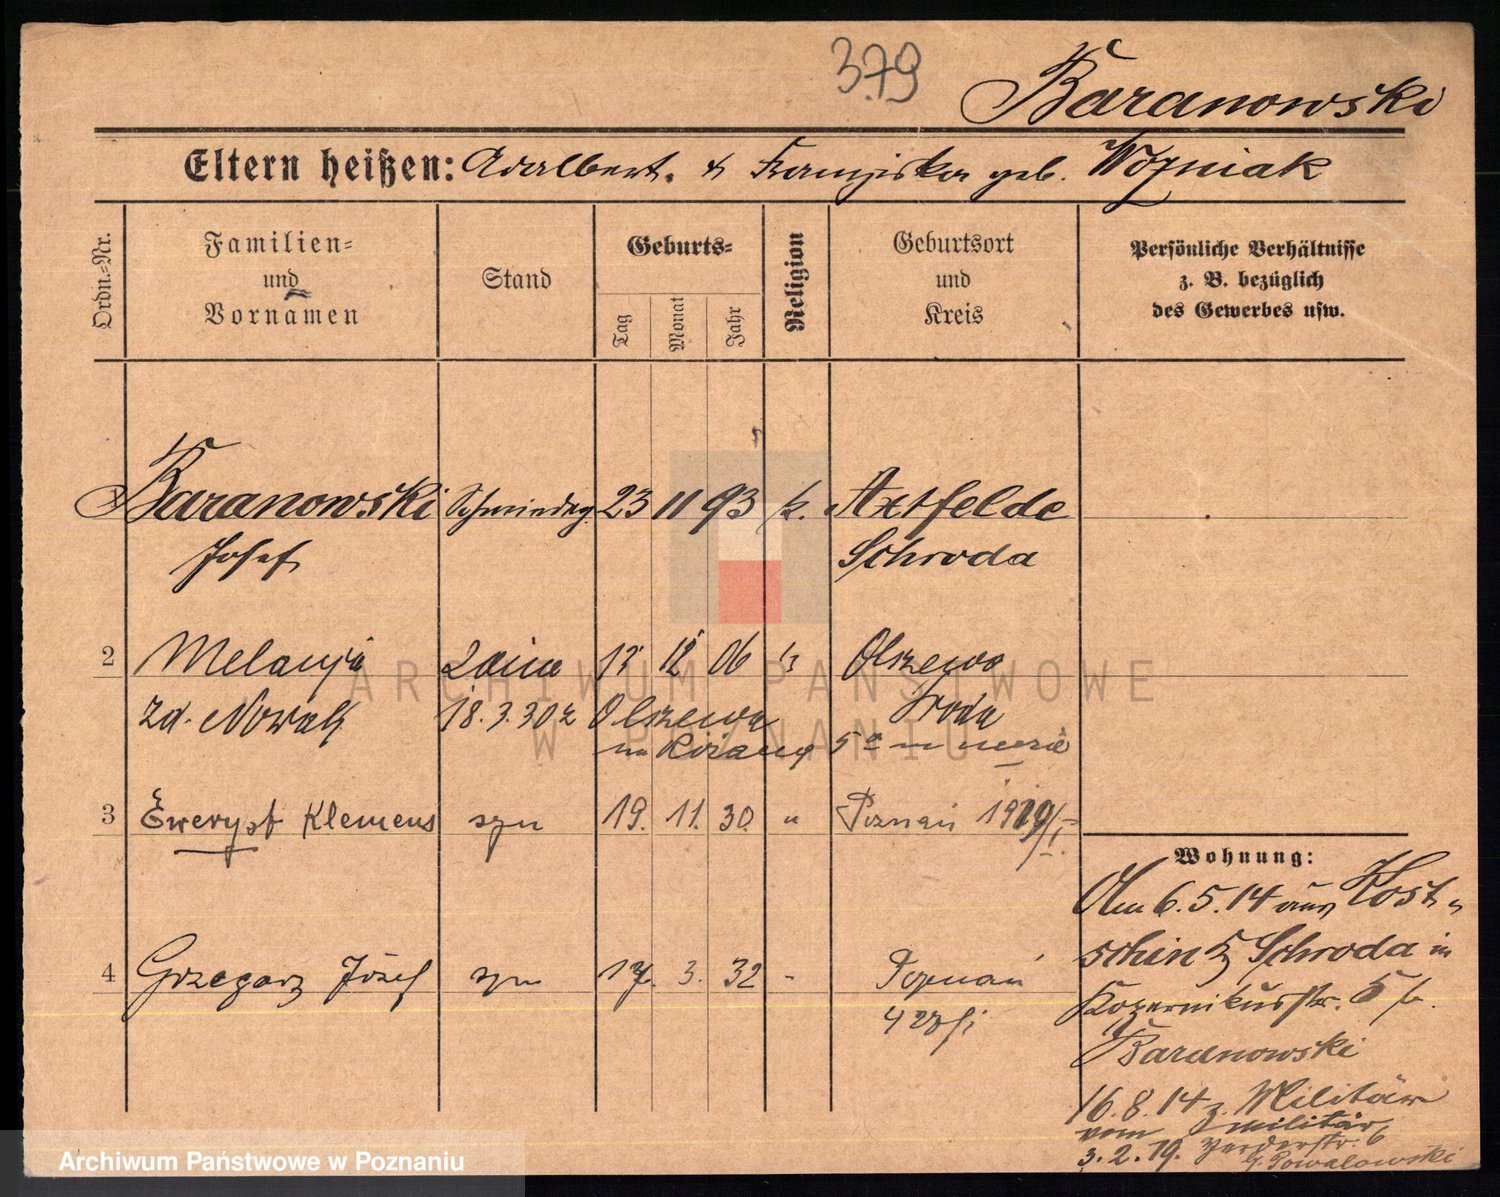 379
Baranowski
Eltern heißen: Adalbert. & Franziska geb. Wozniak
Ordn.-Nr.
Familien- und Vornamen
Stand
Geburts-
Tag
Monat
Jahr
Religion
Geburtsort und Kreis
Persönliche Verhältnisse
z. B. bezüglich
des Gewerbes usw.
Baranowski Schmiedeg. 23 11 93 k. Axtfelde
Josef Schroda
2 Melanja 12 06 Olszewo
zd. Nowak 18.3.30 Olszewa Środa
3 Klemens syn 19. 11. 30. " Poznań
4 Grzegorz Józef syn 17. 3. 32 " Poznań
Wohnung:
6.5.14 aus Kost-
schin Schroda in
Kopernikusstr. 5 b.
Baranowski
16.8.14 z. Militär
vom Militär
3.2.19. 6
Powalowski
ARCHIWUM PAŃSTWOWE
W POZNANIU
Archiwum Państwowe w Poznaniu